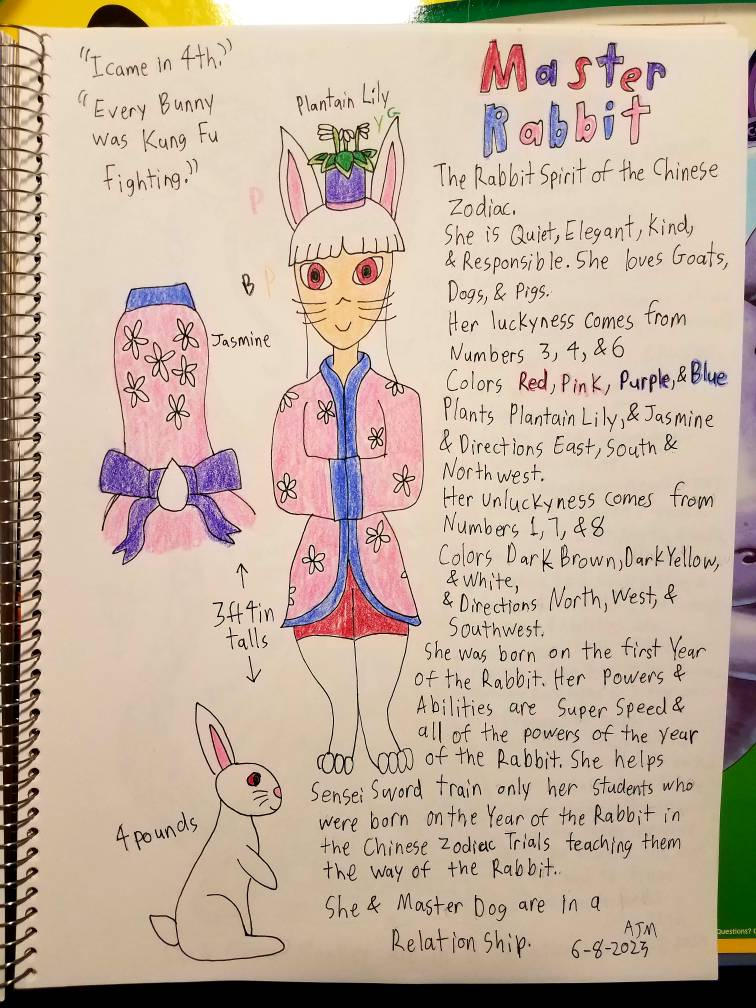 "I came in 4th."
"Every Bunny
was Kung Fu
Fighting."
Plantain Lily
Y G
P
B P
Jasmine
3ft 4in
talls
4 pounds
Master
Rabbit
The Rabbit Spirit of the Chinese
Zodiac.
She is Quiet, Elegant, Kind,
& Responsible. She loves Goats,
Dogs, & Pigs.
Her luckyness comes from
Numbers 3, 4, & 6
Colors Red, Pink, Purple, & Blue
Plants Plantain Lily, & Jasmine
& Directions East, South &
Northwest.
Her unluckyness comes from
Numbers 1, 7, & 8
Colors Dark Brown, Dark Yellow,
& White,
& Directions North, West, &
Southwest.
She was born on the first Year
of the Rabbit. Her Powers &
Abilities are Super Speed &
all of the powers of the year
of the Rabbit. She helps
Sensei Sword train only her students who
were born on the Year of the Rabbit in
the Chinese Zodiac Trials teaching them
the way of the Rabbit.
She & Master Dog are in a
Relation Ship.
AJM
6-8-2023
Questions?